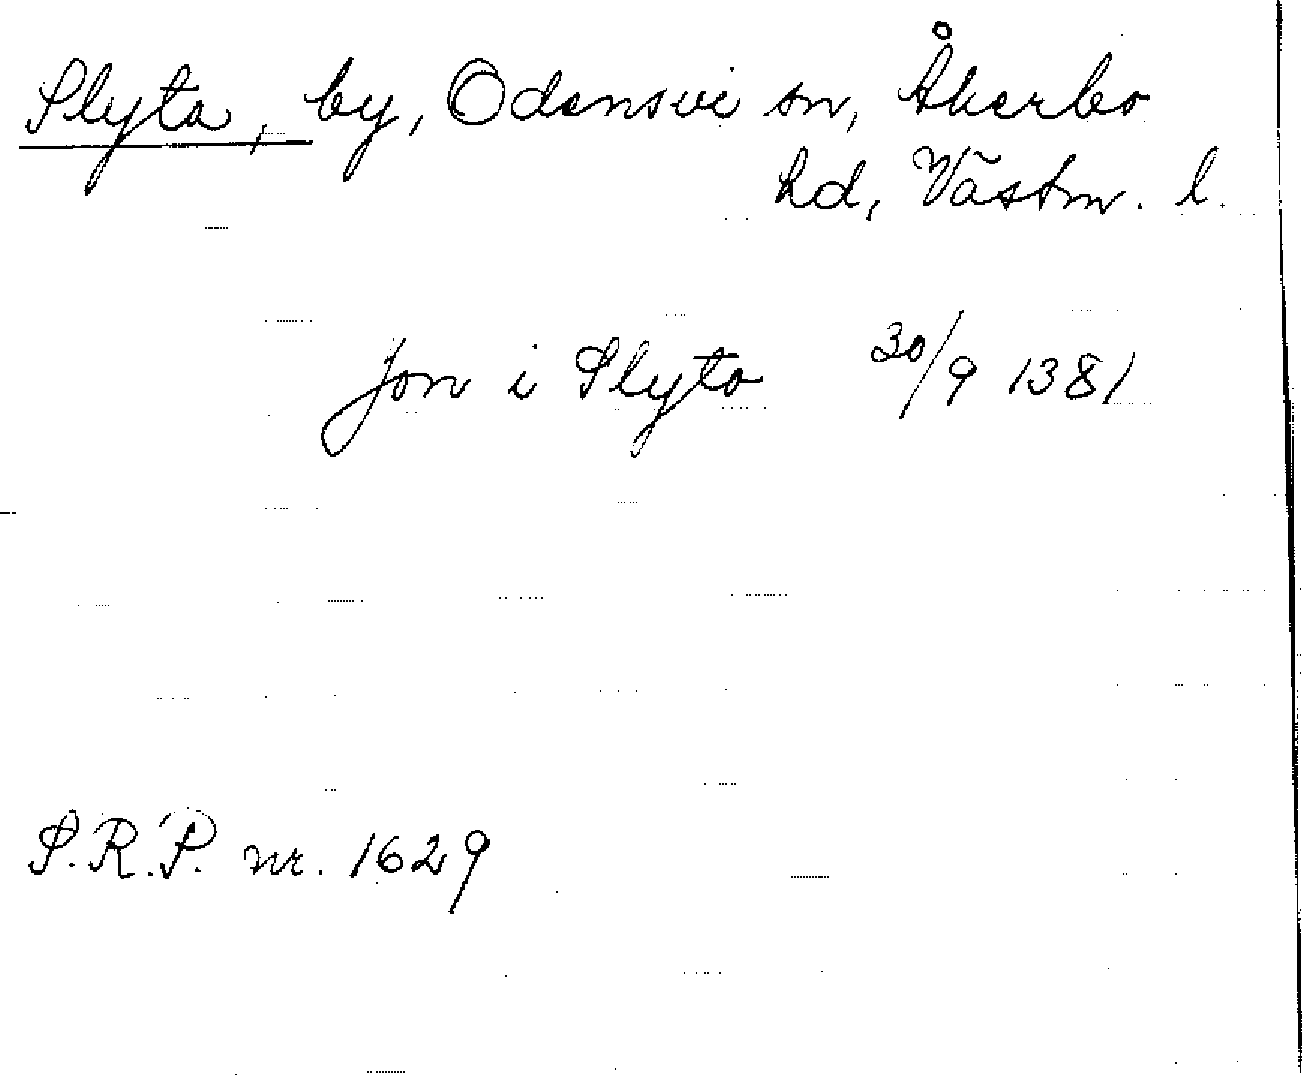 Slyta, by, Odensvi sn, Åkerbo
hd, Västm. l.
Jon i Slyto 30/9 1381
S.R.P. nr. 1629